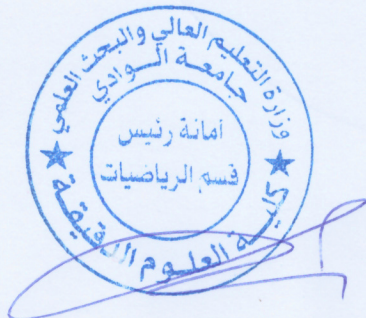 وزارة التعليم العالي والبحث العلمي
جامعة الوادي
أمانة رئيس
قسم الرياضيات
كلية العلوم الدقيقة